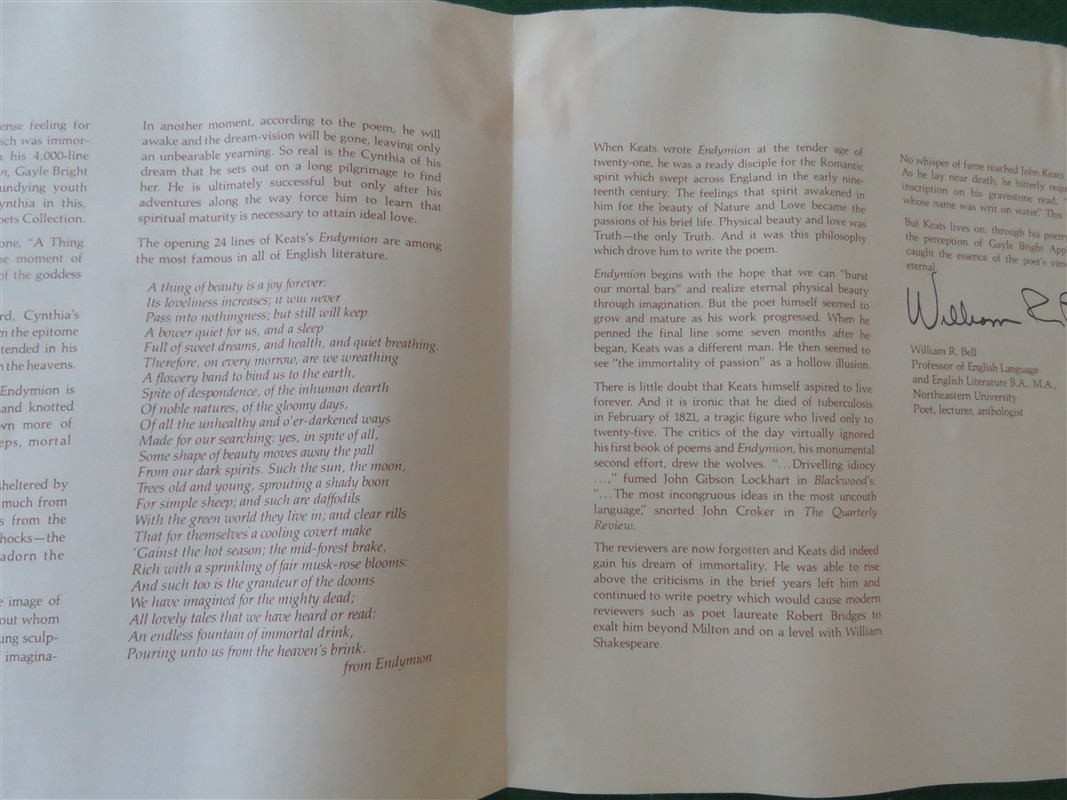 ense feeling for
ich was immor-
his 4,000-line
n, Gayle Bright
undying youth
ynthia in this,
oets Collection.
one, "A Thing
e moment of
of the goddess
rd, Cynthia's
m the epitome
tended in his
n the heavens.
Endymion is
and knotted
wn more of
eps, mortal
sheltered by
much from
s from the
hocks—the
adorn the
e image of
out whom
ung sculp-
imagina-
In another moment, according to the poem, he will
awake and the dream-vision will be gone, leaving only
an unbearable yearning. So real is the Cynthia of his
dream that he sets out on a long pilgrimage to find
her. He is ultimately successful but only after his
adventures along the way force him to learn that
spiritual maturity is necessary to attain ideal love.
The opening 24 lines of Keats's Endymion are among
the most famous in all of English literature.
A thing of beauty is a joy forever:
Its loveliness increases; it will never
Pass into nothingness; but still will keep
A bower quiet for us, and a sleep
Full of sweet dreams, and health, and quiet breathing.
Therefore, on every morrow, are we wreathing
A flowery band to bind us to the earth,
Spite of despondence, of the inhuman dearth
Of noble natures, of the gloomy days,
Of all the unhealthy and o'er-darkened ways
Made for our searching: yes, in spite of all,
Some shape of beauty moves away the pall
From our dark spirits. Such the sun, the moon,
Trees old and young, sprouting a shady boon
For simple sheep; and such are daffodils
With the green world they live in; and clear rills
That for themselves a cooling covert make
'Gainst the hot season; the mid-forest brake,
Rich with a sprinkling of fair musk-rose blooms:
And such too is the grandeur of the dooms
We have imagined for the mighty dead;
All lovely tales that we have heard or read:
An endless fountain of immortal drink,
Pouring unto us from the heaven's brink.
from Endymion
When Keats wrote Endymion at the tender age of
twenty-one, he was a ready disciple for the Romantic
spirit which swept across England in the early nine-
teenth century. The feelings that spirit awakened in
him for the beauty of Nature and Love became the
passions of his brief life. Physical beauty and love was
Truth—the only Truth. And it was this philosophy
which drove him to write the poem.
Endymion begins with the hope that we can "burst
our mortal bars" and realize eternal physical beauty
through imagination. But the poet himself seemed to
grow and mature as his work progressed. When he
penned the final line some seven months after he
began, Keats was a different man. He then seemed to
see "the immortality of passion" as a hollow illusion.
There is little doubt that Keats himself aspired to live
forever. And it is ironic that he died of tuberculosis
in February of 1821, a tragic figure who lived only to
twenty-five. The critics of the day virtually ignored
his first book of poems and Endymion, his monumental
second effort, drew the wolves. "...Drivelling idiocy
...," fumed John Gibson Lockhart in Blackwood's.
"...The most incongruous ideas in the most uncouth
language," snorted John Croker in The Quarterly
Review.
The reviewers are now forgotten and Keats did indeed
gain his dream of immortality. He was able to rise
above the criticisms in the brief years left him and
continued to write poetry which would cause modern
reviewers such as poet laureate Robert Bridges to
exalt him beyond Milton and on a level with William
Shakespeare.
No whisper of fame reached John Keats
As he lay near death, he bitterly requ
inscription on his gravestone read, "
whose name was writ on water." This
But Keats lives on, through his poetry
the perception of Gayle Bright App
caught the essence of the poet's view
eternal.
William R. B
William R. Bell
Professor of English Language
and English Literature B.A., M.A.,
Northeastern University
Poet, lecturer, anthologist